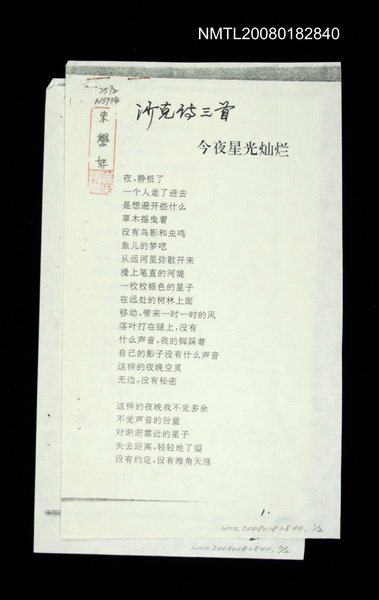 NMTL20080182840
沂克诗三首
今夜星光灿烂
夜,静极了
一个人走了进去
是想避开些什么
草木摇曳着
没有鸟影和虫鸣
鱼儿的梦呓
从运河里弥散开来
漫上笔直的河堤
一枚枚银色的星子
在远处的树林上面
移动,带来一时一时的风
落叶打在腿上,没有
什么声音,我的脚踩着
自己的影子没有什么声音
这样的夜晚空灵
无边,没有秘密
这样的夜晚我不觉多余
不觉声音的份量
对渐渐靠近的星子
失去距离,轻轻地了望
没有约定,没有海角天涯
1.
NMTL20080182840, 1/2
NMTL20080182840, 2/2